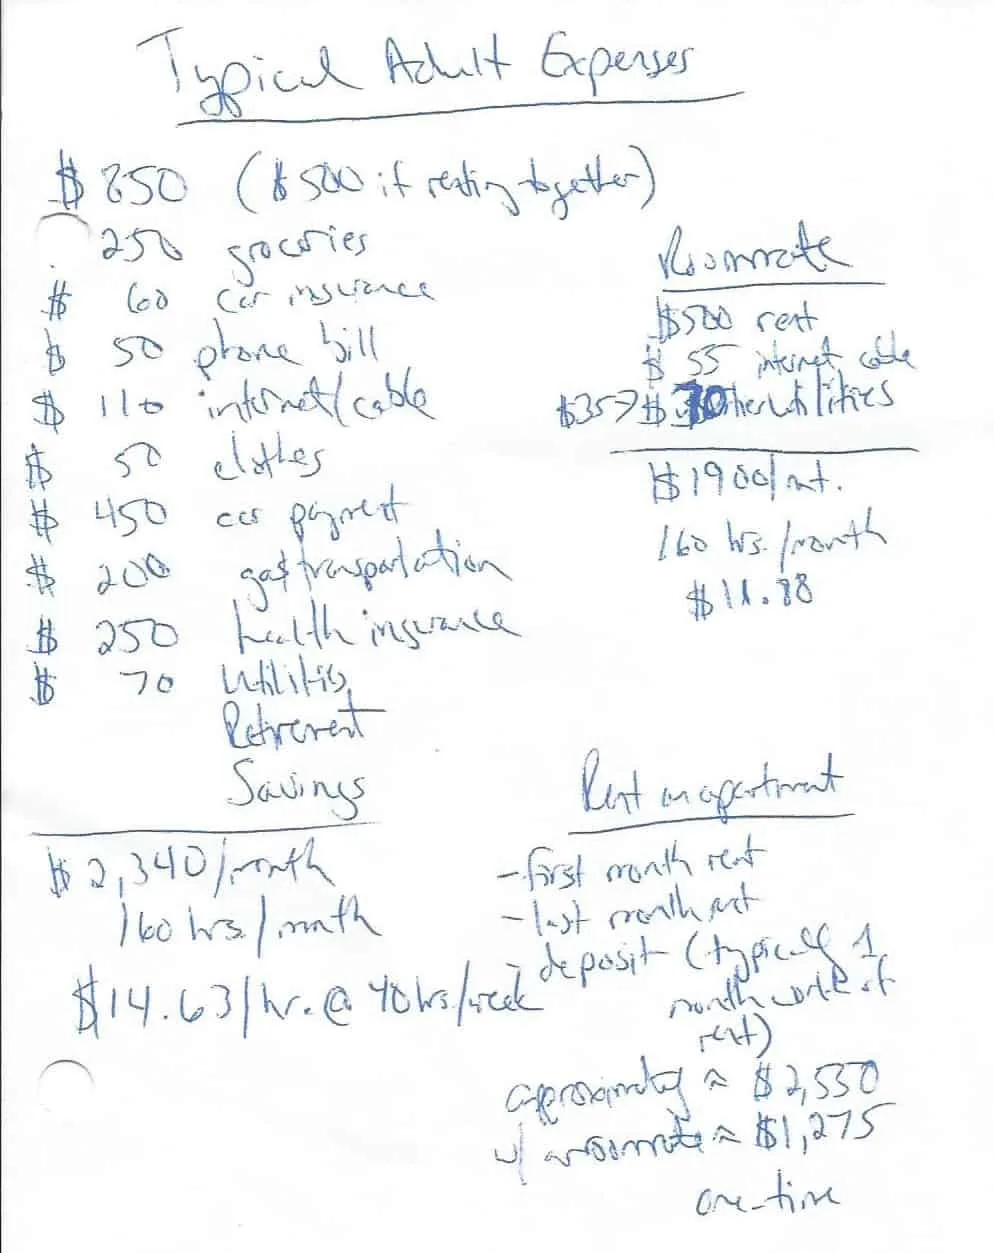 Typical Adult Expenses
$ 850 ($500 if renting together)
250 groceries
$ 60 car insurance
$ 50 phone bill
$ 110 internet/cable
$ 50 clothes
$ 450 car payment
$ 200 gas transportation
$ 250 health insurance
$ 70 Utilities
Retirement
Savings
$2,340/month
160 hrs./month
$14.63/hr. @ 40 hrs/week
Roommate
$500 rent
$ 55 internet cable
$35→$70 other utilities
$1900/mt.
160 hrs./month
$11.88
Rent an apartment
-first month rent
-last month rent
-deposit (typically 1
month worth of
rent)
approximately ≈ $2,550
w/ a roommate ≈ $1,275
one-time